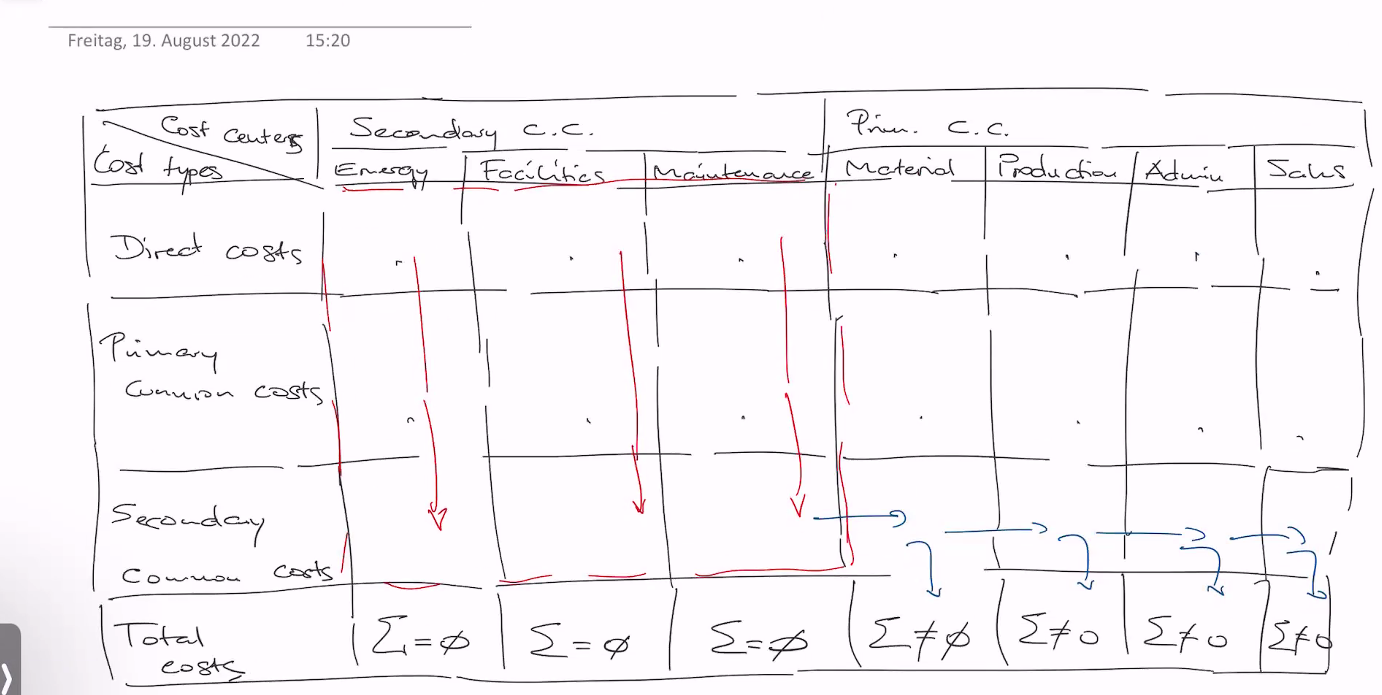 Freitag, 19. August 2022 15:20
Cost centers
Cost types
Secondary c.c.
Prim. c.c.
Energy Facilities Maintenance Material Production Admin Sales
Direct costs
Primary
Common costs
Secondary
Common costs
Total
costs
Σ=ø Σ=ø Σ=ø Σ≠ø Σ≠0 Σ≠0 Σ≠0